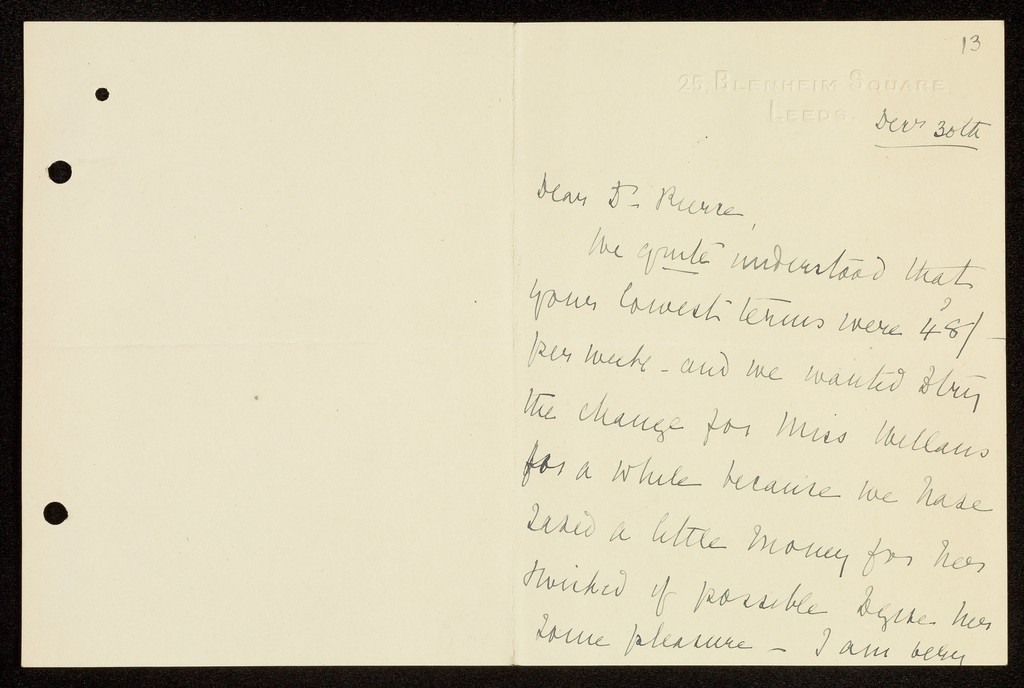 13
25, BLENHEIM SQUARE,
LEEDS.
Decr 30th
Dear Dr Pierce,
We quite understood that
your lowest terms were 48/-
per week - and we wanted to try
the change for Miss Wellans
for a while because we have
saved a little money for her
& wished if possible to give her
some pleasure - I am very